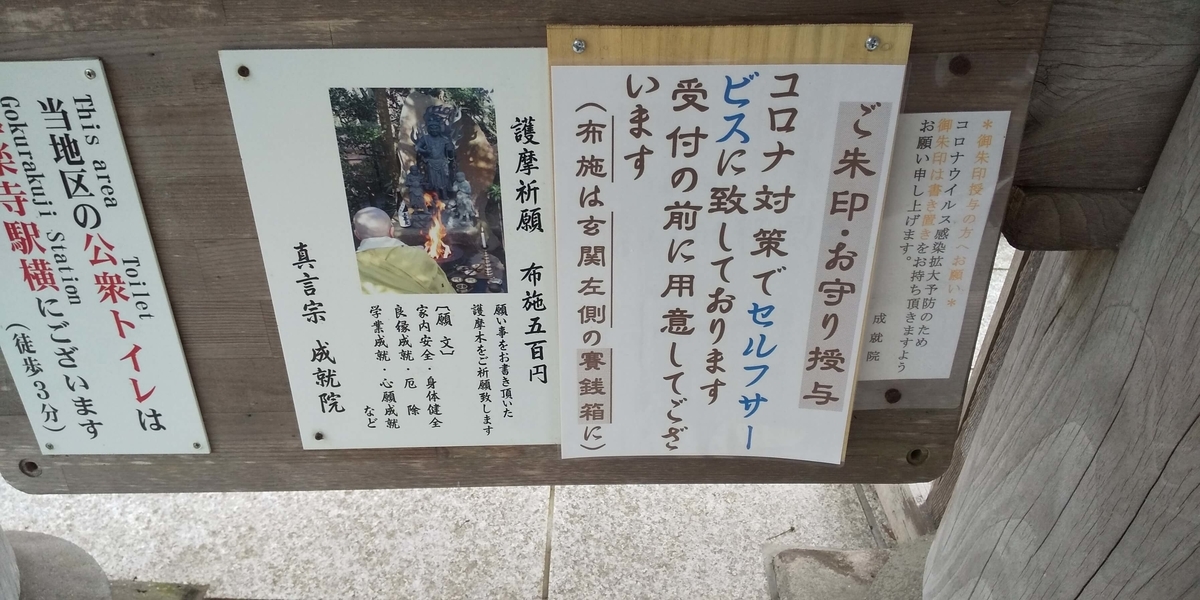 ＊御朱印授与の方へお願い＊
コロナウイルス感染拡大予防のため
御朱印は書き置きをお持ち頂きますよう
お願い申し上げます。
成就院
ご朱印・お守り授与
コロナ対策でセルフサー
ビスに致しております
受付の前に用意してござ
います
（布施は玄関左側の賽銭箱に）
護摩祈願 布施五百円
願い事をお書き頂いた
護摩木をご祈願致します
〔願文〕
家内安全・身体健全
良縁成就・厄除
学業成就・心願成就
など
真言宗 成就院
Toilet
当地区の公衆トイレは
This area
楽寺駅横にございます
Gokurakuji Station
（徒歩3分）